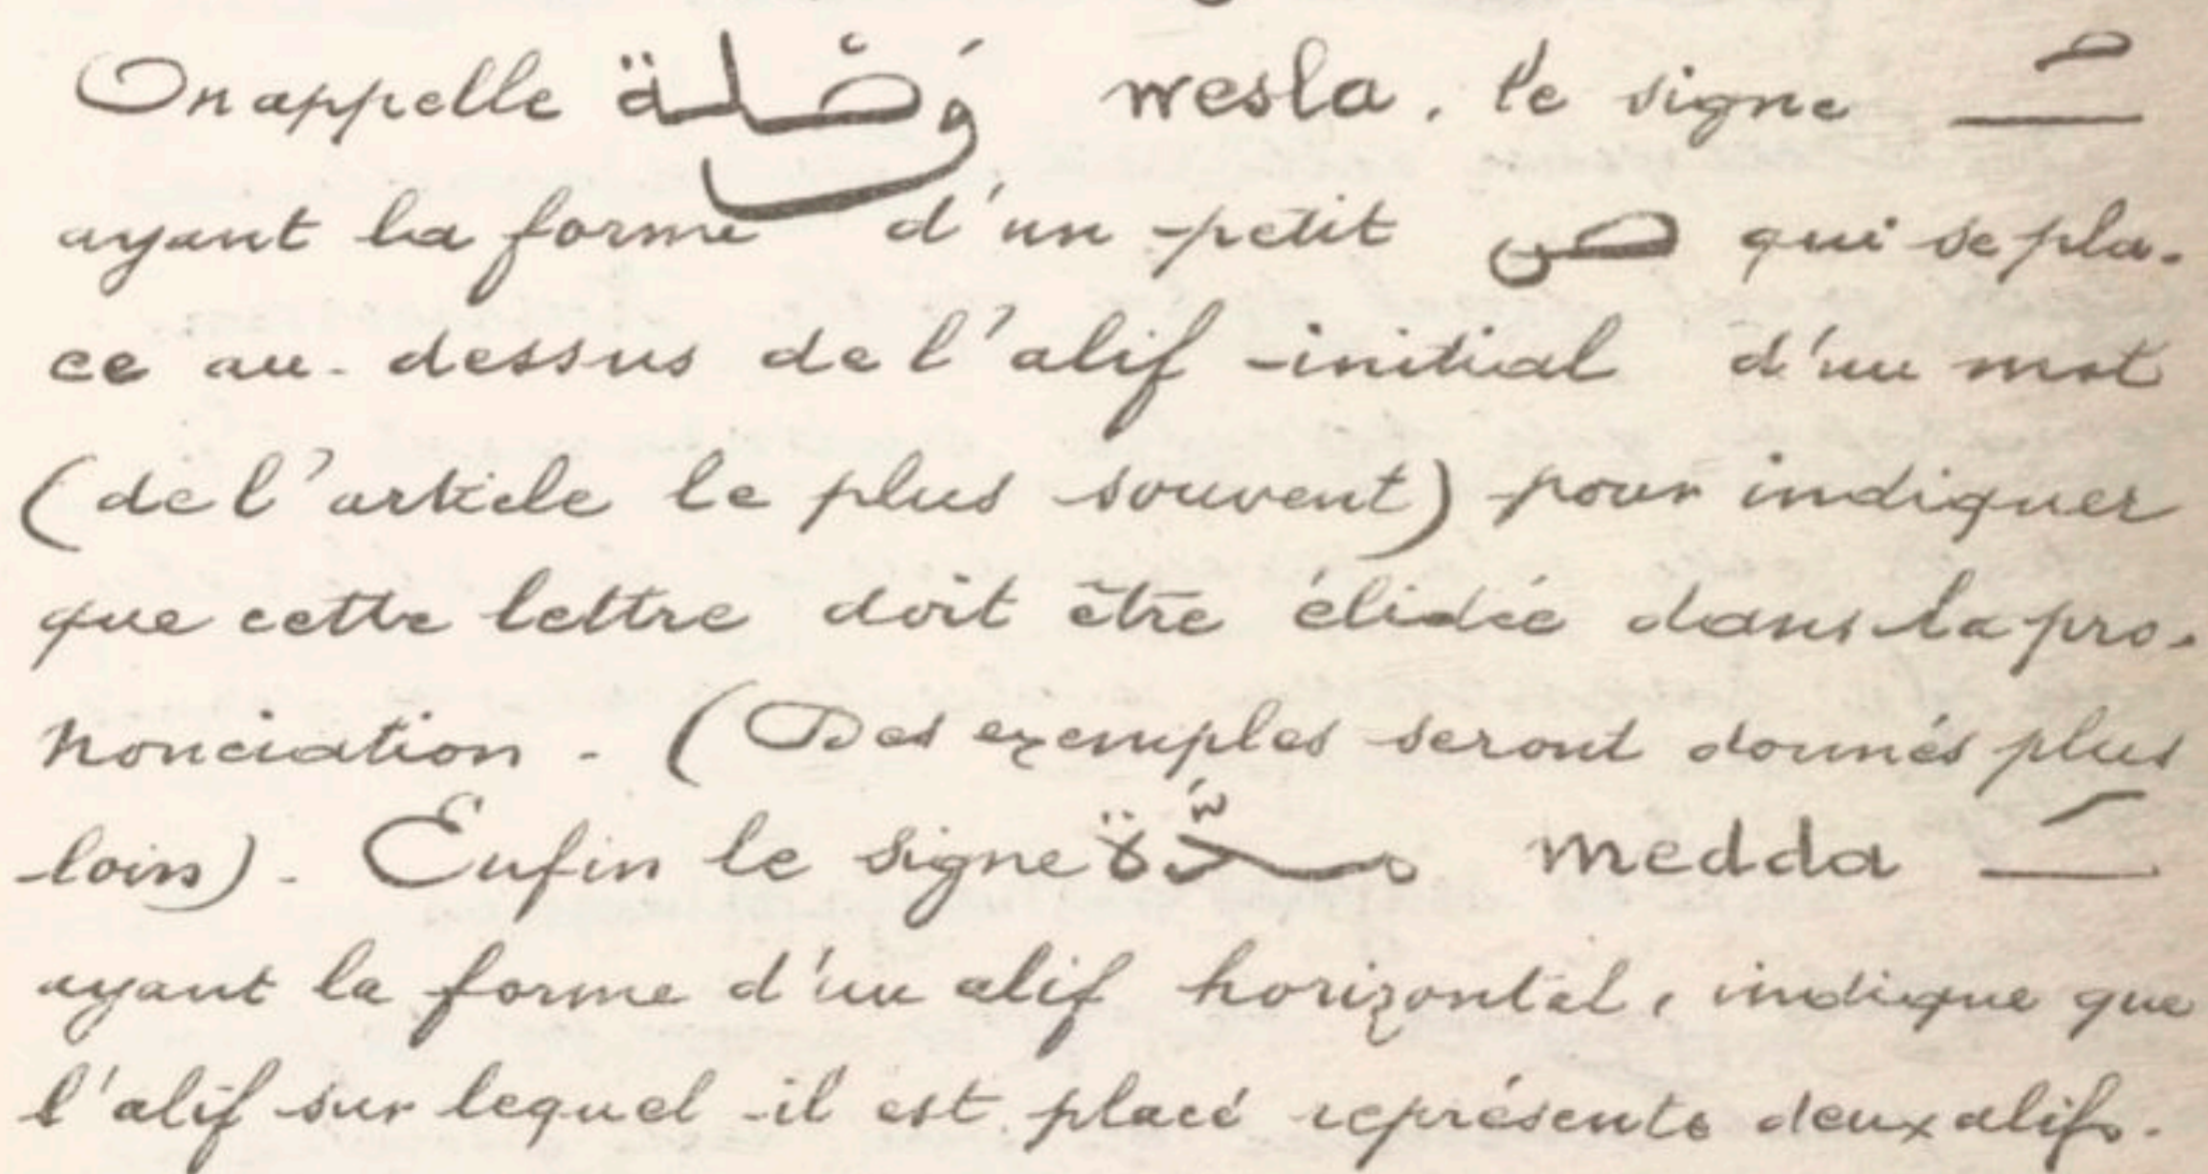 On appelle وَصْلة wesla, le signe ـۡـ
ayant la forme d'un petit ص qui se pla-
ce au-dessus de l'alif initial d'un mot
(de l'article le plus souvent) pour indiquer
que cette lettre doit être élidée dans la pro-
nonciation. (Des exemples seront donnés plus
loin). Enfin le signe مدّة medda ـٓـ
ayant la forme d'un alif horizontal, indique que
l'alif sur lequel il est placé représente deux alifs.